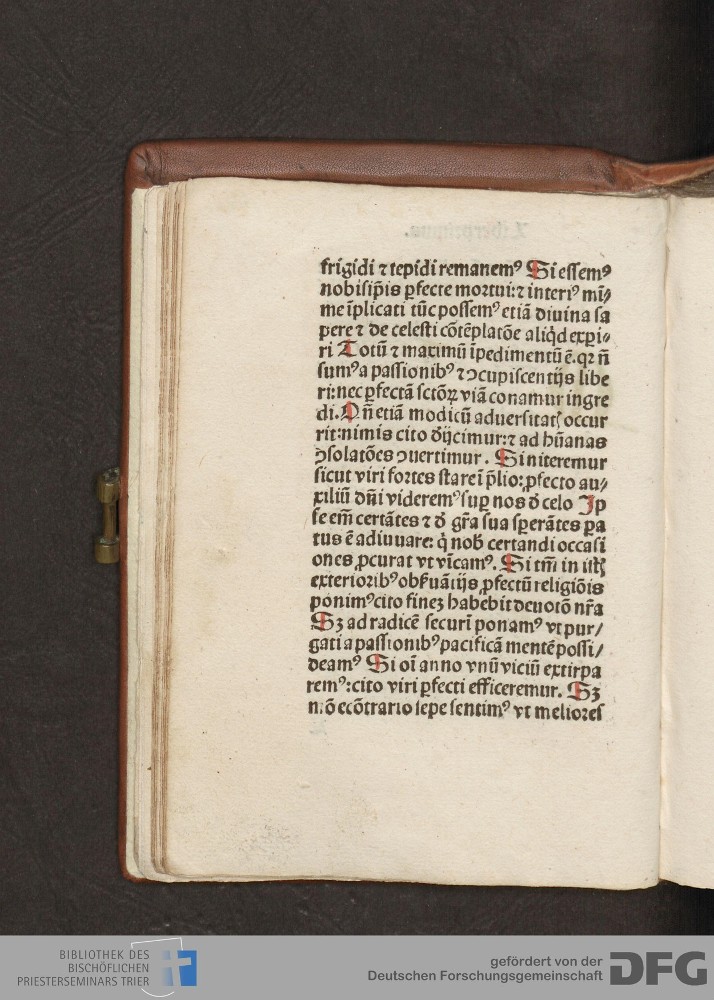 frigidi ⁊ tepidi remanemꝰ Si essemꝰ
nobisip̄is ꝑfecte mortui: ⁊ interiꝰ mī/
me īplicati tūc possemꝰ etiā diuina sa
pere ⁊ de celesti cōtēplatōe aliq̇d expi-
ri Totū ⁊ maximū īpedimentū ē. qꝛ n̄
sumꝰ a passionibꝰ ⁊ ↄcupiscentijs libe
ri: nec ꝑfectā sctōꝝ viā conamur ingre
di. Qn̄ etiā modicū aduersitatꝭ occur
rit: nimis cito deijcimur: ⁊ ad hūanas
ↄsolatōes ↄuertimur. Si niteremur
sicut viri fortes stare ī p̄lio: ꝓfecto au/
xiliū dn̄i videremꝰ sup nos de celo Ip
se em̄ certātes ⁊ de gr̄a sua sperātes pa
tus ē adiuuare: q̇ nob̄ certandi occasi
ones ꝓcurat vt vīcamꝰ. Si tm̄ in istꝭ
exterioribꝰ obẜuātijs ꝓfectū religiōis
ponimꝰ cito finez habebit deuotō nr̄a
Sꝫ ad radicē securī ponamꝰ vt pur/
gati a passionibꝰ pacificā mentē possi/
deamꝰ Si oī anno vnū viciū extirpa
remꝰ: cito viri ꝑfecti efficeremur. Sꝫ
mō ecōtrario sepe sentimꝰ vt meliores
BIBLIOTHEK DES
BISCHÖFLICHEN
PRIESTERSEMINARS TRIER
gefördert von der
Deutschen Forschungsgemeinschaft DFG